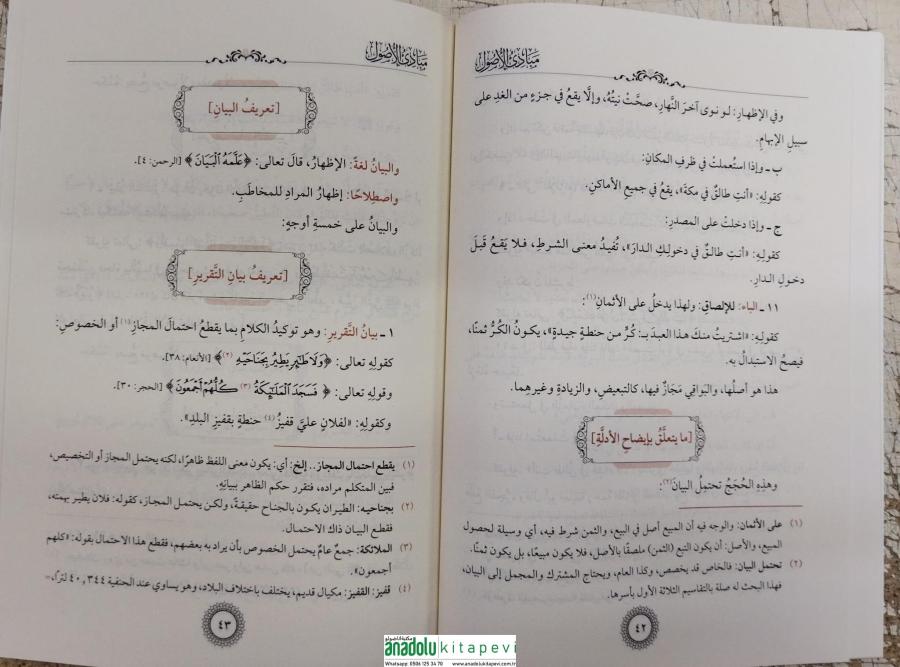 مبادئ الأصول
وفي الإظهارِ: لو نوى آخرَ النَّهارِ، صحَّتْ نيتُهُ، وإلَّا يقعُ في جزءٍ من الغدِ على
سبيلِ الإبهامِ.
ب ـ وإذا استُعملتْ في ظرفِ المكانِ:
كقولِهِ: «أنتِ طالقٌ في مكةَ»، يقعُ في جميعِ الأماكنِ.
ج ـ وإذا دخلتْ على المصدرِ:
كقولِهِ: «أنتِ طالقٌ في دخولِكِ الدارَ»، تُفيدُ معنى الشرطِ، فلا يَقعُ قبلَ
دخولِ الدارِ.
١١ ـ الباء: للإلصاقِ: ولهذا يدخلُ على الأثمانِ(١):
كقولِهِ: «اشتريتُ منكَ هذا العبدَ بـ: كُرٍّ من حنطةٍ جيدةٍ»، يكونُ الكُرُّ ثمنًا،
فيصحُّ الاستبدالُ به.
هذا هو أصلُها، والبَواقي مَجازٌ فيها، كالتبعيضِ، والزيادةِ وغيرِهما.
[ما يتعلَّقُ بإيضاحِ الأدلَّةِ]
وهذِهِ الحُجَجُ تحتمِلُ البيانَ(٢).
(١) على الأثمان: والوجه فيه أن المبيع أصل في البيع، والثمن شرط فيه، أي وسيلة لحصول
المبيع، والأصل: أن يكون التبع (الثمن) ملصقًا بالأصل، فلا يكون مبيعًا، بل يكون ثمنًا.
(٢) تحتمل البيان: فالخاص قد يخصص، وكذا العام، ويحتاج المشترك والمجمل إلى البيان،
فهذا البحث له صلة بالتقاسيم الثلاثة الأول بأسرها.
٤٢
مبادئ الأصول
[تعريفُ البيانِ]
والبيانُ لغةً: الإظهارُ، قالَ تعالى: ﴿عَلَّمَهُ الْبَيَانَ﴾ [الرحمن: ٤].
واصطِلاحًا: إظهارُ المرادِ للمخاطَبِ.
والبيانُ على خمسةِ أوجهٍ:
[تعريفُ بيانِ التَّقريرِ]
١ ـ بيانُ التَّقريرِ: وهو توكيدُ الكلامِ بما يقطعُ احتمالَ المجازِ(١) أو الخصوصِ:
كقولِهِ تعالى: ﴿وَلَا طَائِرٍ يَطِيرُ بِجَنَاحَيْهِ(٢)﴾ [الأنعام: ٣٨].
وقولِهِ تعالى: ﴿فَسَجَدَ الْمَلَائِكَةُ(٣) كُلُّهُمْ أَجْمَعُونَ﴾ [الحجر: ٣٠].
وكقولِهِ: «لفلانٍ عليَّ قفيزُ(٤) حنطةٍ بقفيزِ البلدِ».
(١) يقطع احتمال المجاز.. إلخ: أي: يكون معنى اللفظ ظاهرًا، لكنه يحتمل المجاز أو التخصيص،
فبين المتكلم مراده، فتقرر حكم الظاهر ببيانِهِ.
(٢) بجناحيه: الطيران يكون بالجناح حقيقةً، ولكن يحتمل المجاز، كقوله: فلان يطير بهمته،
فقطع البيان ذاك الاحتمال.
(٣) الملائكة: جمعٌ عامٌّ يحتمل الخصوص بأن يراد به بعضهم، فقطع هذا الاحتمال بقوله: «كلهم
أجمعون».
(٤) قفيز: القفيز: مكيال قديم، يختلف باختلاف البلاد، وهو يساوي عند الحنفية ٤٠,٣٤٤ لترًا،=
٤٣
مكتبة الأناضولو
anadolu kitapevi
Whatsapp: 0506 125 34 70 www.anadolukitapevi.com.tr